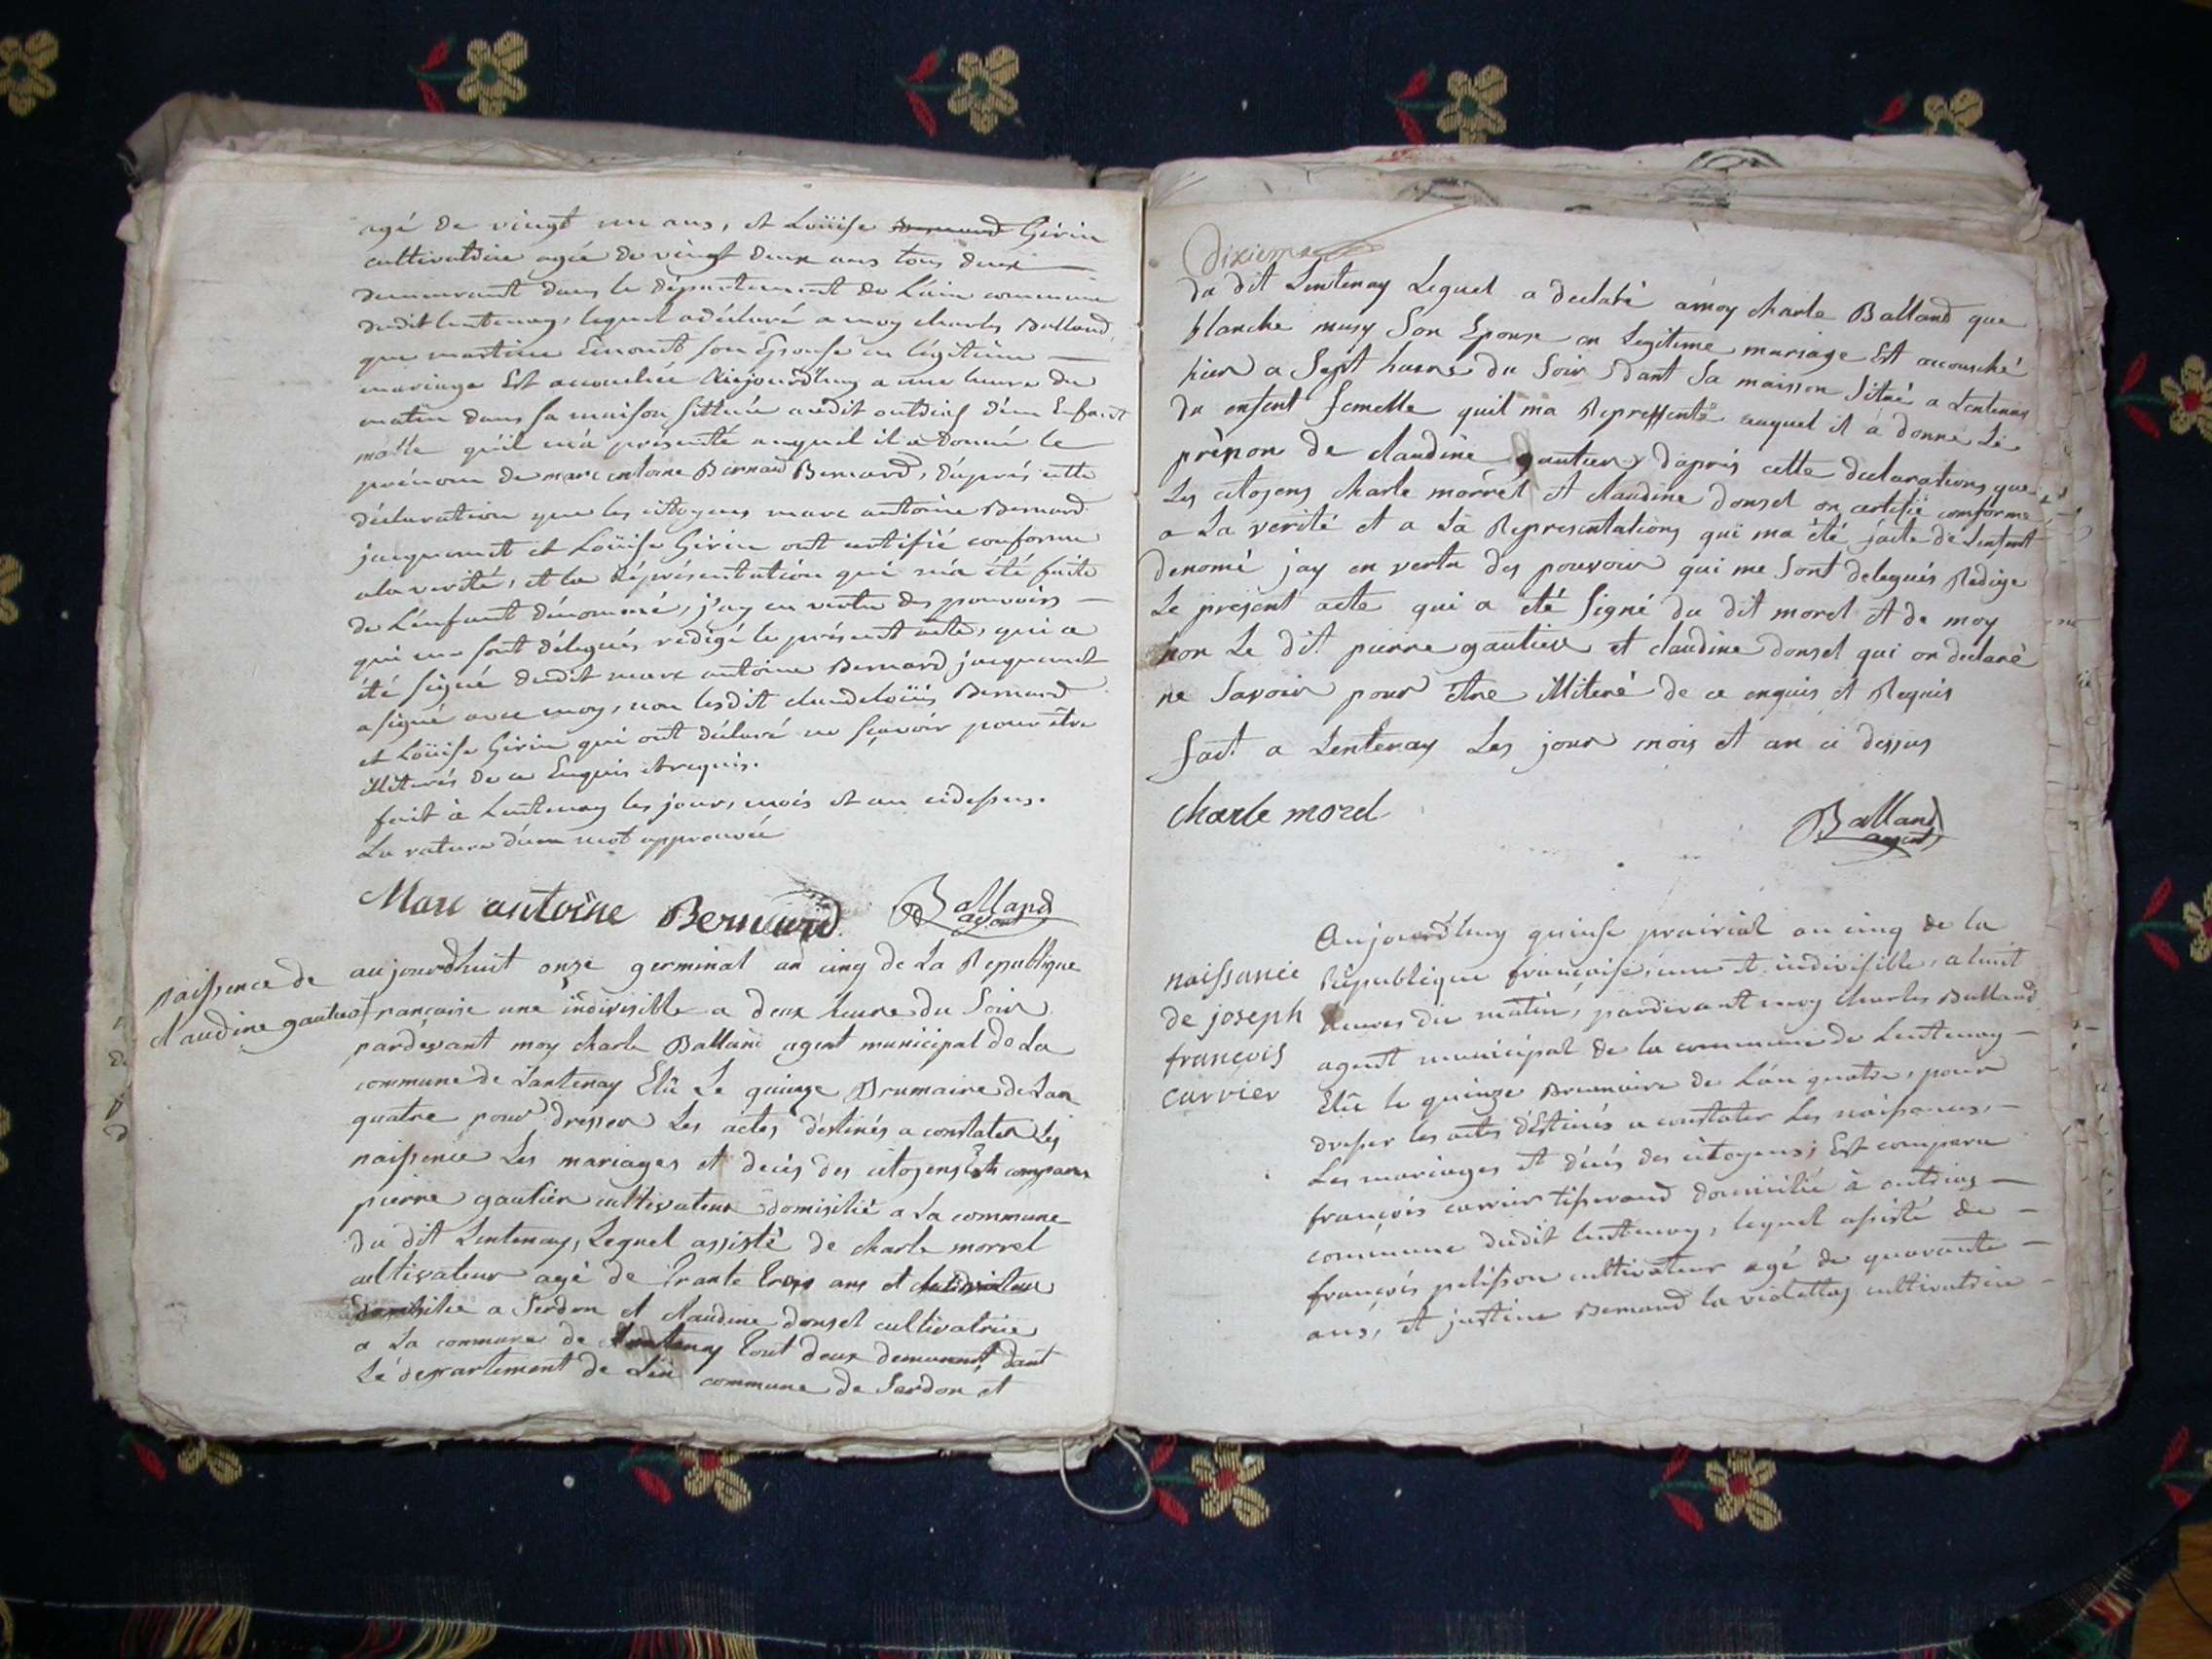 agé de vingt un ans, et Loüise Bernard Girin
cultivatrice agée de vingt deux ans tous deux
demeurant dans le département de Lain commune
dudit lentenay, lequel a déclaré a moy charles Balland
que martine Emonet son Epouse en légitime
mariage Est accouchée aujourd'huy a une heure du
matin dans sa maison sittuée audit outriaz d'un Enfant
malle qu'il m'a présenté auquel il a donné le
prénom de marc antoine Bernard Bernard, d'après cette
déclaration que les citoyens marc antoine Bernard
jacquemet et Loüise Girin ont certifié conforme
a la verité, et la réprésentation qui m'a été faite
de L'enfant dénommé, j'ay en vertu des pouvoirs
qui me sont délegués redigé le présent acte, qui a
été signé dudit marc antoine Bernard jacquemet
a signé avec moy, non lesdit claudeloüis Bernard
et Loüise Girin qui ont déclaré ne sçavoir pour être
illiterés de ce Enquis et requis.
fait à Lentenay les jour, mois et an cidessus.
La rature d'un mot approuvée
Marc antoine Bernard Balland agent
naissence de
claudine gautier
aujourdhuit onze germinal an cinq de La Republique
francaise une indivisible a deux heure du Soir
pardevant moy charle Balland agent municipal de La
commune de Lantenay Elü Le quinze Brumaire de Lan
quatre pour dresser Les actes déstinés a constater Les
naissence Les mariages et decés des citoyens Est comparu
pierre gautier cultivateur domisilié a La commune
du dit Lentenay, Lequel assisté de charle morrel
cultivateur agé de trante trois ans et
domisilie a Serdon et claudine donsel cultivatrice
a La commune de Lentenay tout deux demurant dant
Lé departement de Lin commune de Serdon et
Dixieme
du dit Lentenay Lequel a declaré a moy charle Balland que
blanche musy Son Epouse en Legitime mariage Est accousché
hier a Sept heure du Soir dant Sa maisson Sitüé a Lentenay
du enfent femelle quil ma Representé auquel il a donné Lé
prénon de claudine gautier, d'aprés cette declarations que
Les citoyens charle morrel et claudine donsel on certifié comforme
a La verité et a La Representations qui ma été faite de Lenfent
denomé jay en vertu des pouvoir qui me Sont delegués Redigé
Le present acte qui a été Signé du dit morel et de moy
non Le dit pierre gautier et claudine donsel qui on declaré
ne Savoir pour étre illiteré de ce enquis et Requis
fait a Lentenay Les jour mois et an ci dessus
charle morel
Balland agent
naissance
de joseph
françois
carrier
Aujourd'huy quinse prairial an cinq de la
République française, une et indivisible, a huit
heures du matin, pardevant moy Charles Balland
agent municipal de la commune de Lentenay
Elü le quinze Brumaire de L'an quatre, pour
dresser les actes déstinés a constater Les naissances,
Les mariages et décés des citoyens; Est comparu
françois carrier tisserand domicilié à outriaz
commune dudit lentenay, lequel assisté de
françois pelisson cultivateur agé de quarante
ans, et justine Bernard la violettaz cultivatrice